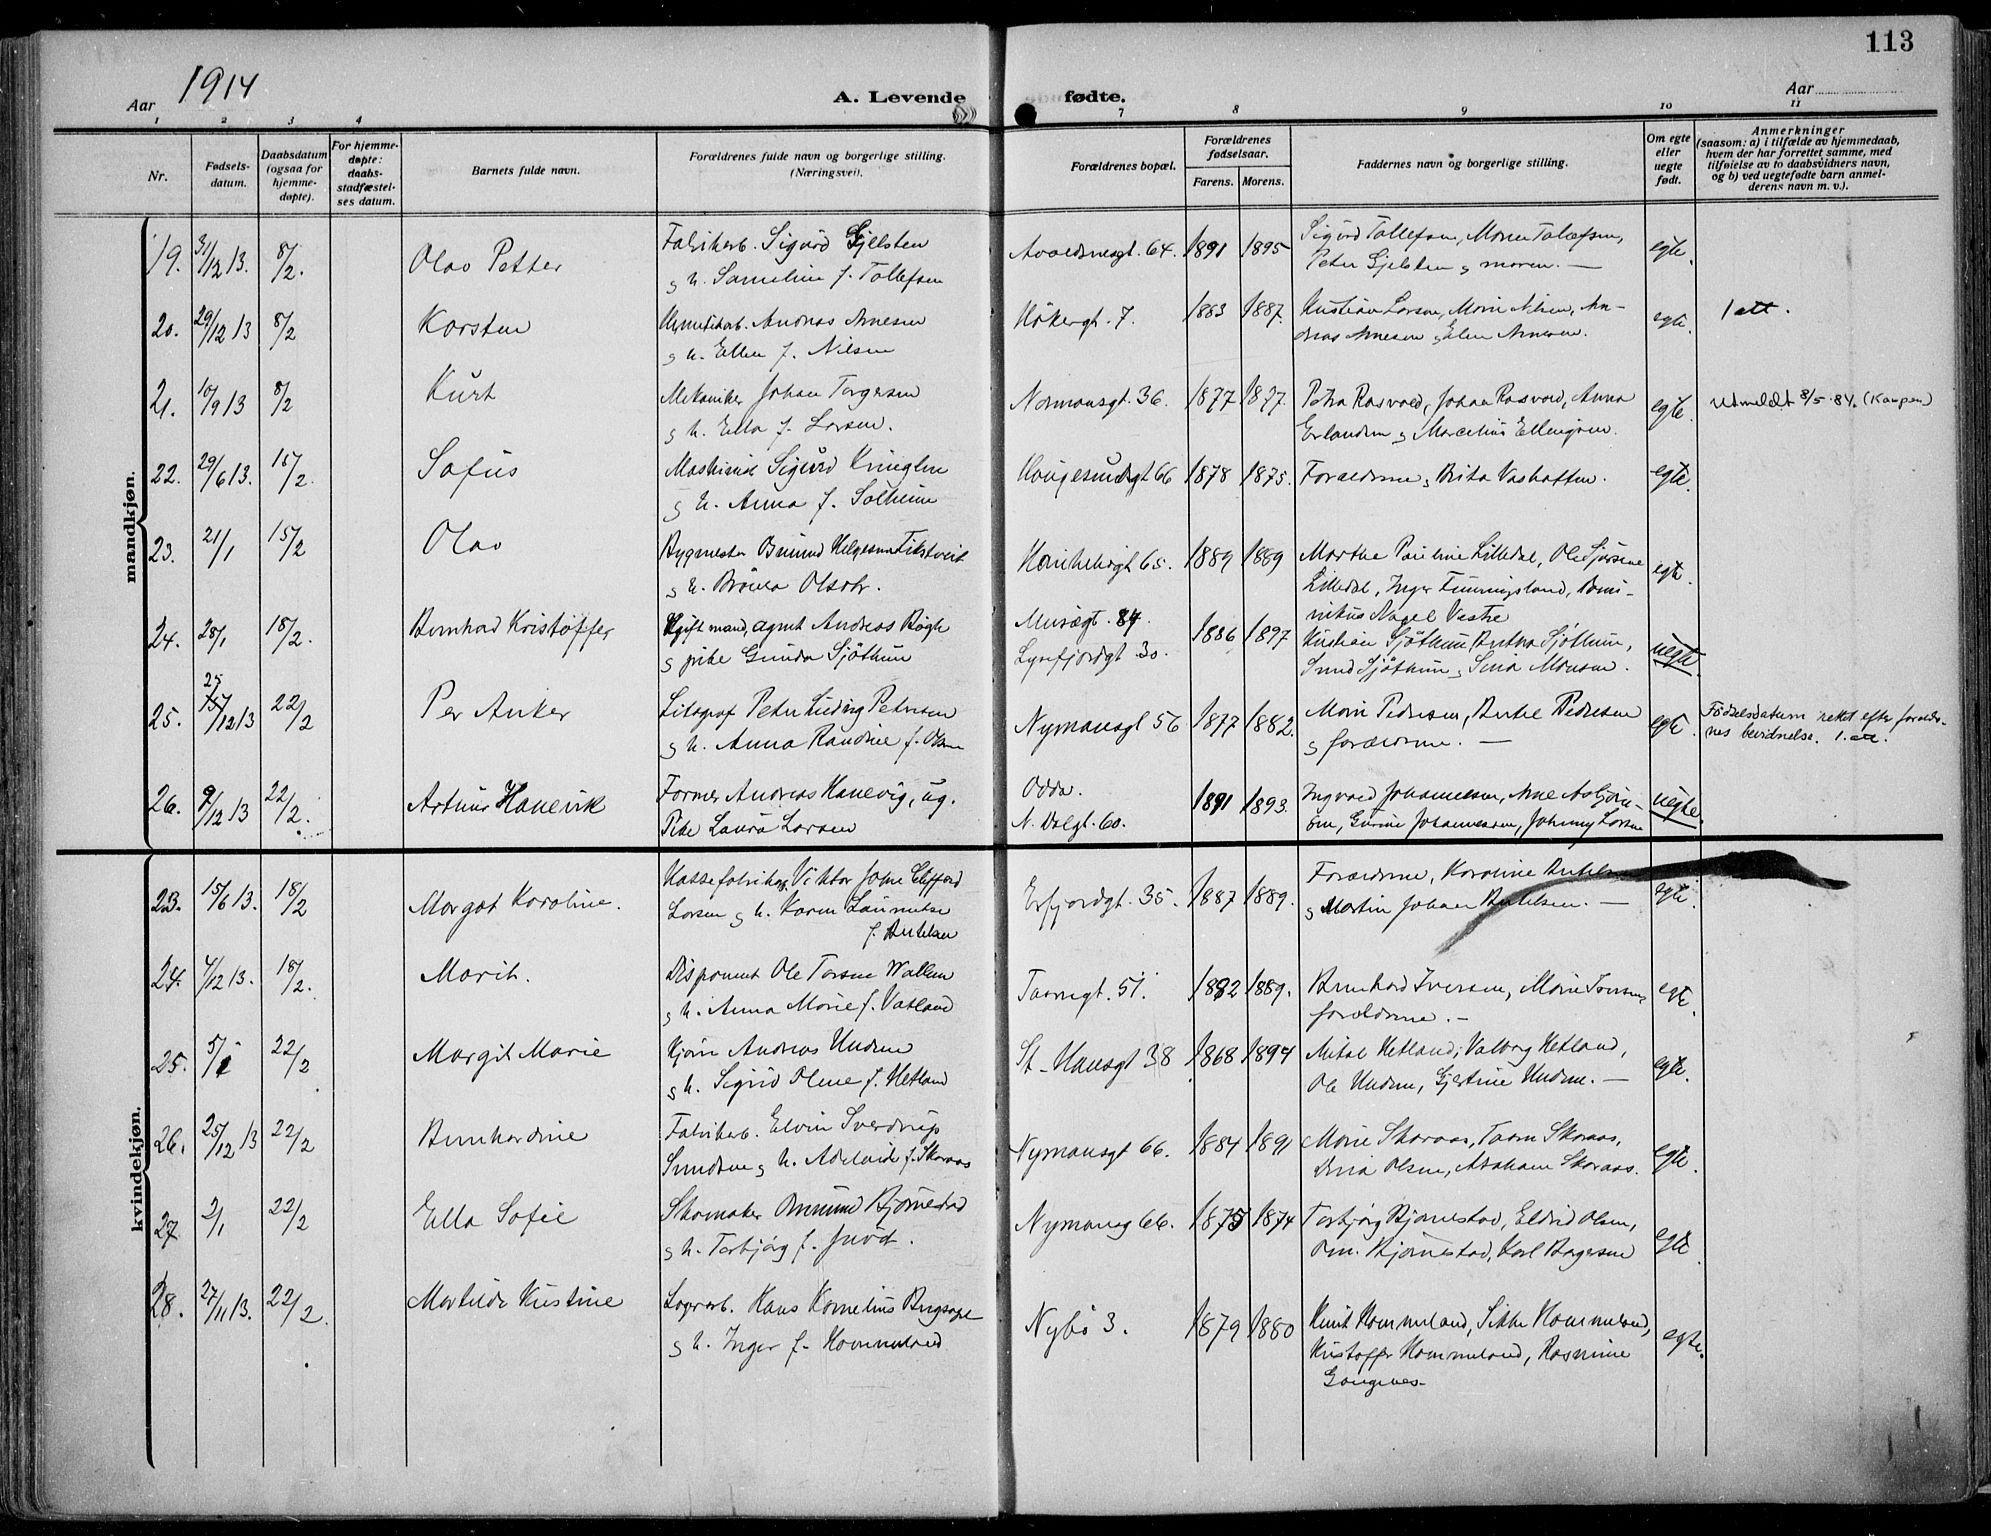 113
Aar 1914
A. Levende fødte.
Aar
1 2 3 4 7 8 9 10 11
Nr.
Fødsels-
datum.
Daabsdatum
(ogsaa for
hjemme-
døpte).
For hjemme-
døpte:
daabs-
stadfæstel-
ses datum.
Barnets fulde navn.
Forældrenes fulde navn og borgerlige stilling.
(Næringsvei).
Forældrenes bopæl.
Forældrenes
fødselsaar.
Farens. Morens.
Faddernes navn og borgerlige stilling.
Om egte
eller
uegte
født.
Anmerkninger
(saasom: a) i tilfælde av hjemmedaab,
hvem der har forrettet samme, med
tilføielse av to daabsvidners navn,
og b) ved uegtefødte barn anmel-
derens navn m. v.).
mandkjøn.
19. 31/12 13. 8/2. Olav Petter
Fabrikarb. Sigurd Gjelsten
og h. Sameline f. Tollefsen
Avaldsnesgt. 64. 1891 1895
Sigurd Tollefsen, Marie Tollefsen,
Peter Gjelsten og moren. —
egte.
20. 29/12 13 8/2 Karsten
Hermetikarb. Andreas Arnesen
og h. Ellen f. Nilsen
Høkergt. 7. 1883 1887.
Kristian Larsen, Marie Nilsen, An-
dreas Arnesen og Elen Arnesen.
egte. 1 att.
21. 10/9 13 8/2 Kurt
Mekaniker Johan Torgersen
og h. Ella f. Larsen.
Normansgt. 36. 1877 1877.
Petra Rasvold, Johan Rasvold, Anna
Erlandsen og Marcelius Ellingsen.
egte. Utmeldt 8/5 84. (Kampen)
22. 29/6 13. 15/2. Sofus
Maskinist Sigurd Kringlen
og h. Anna f. Solheim
Haugesundsgt 66 1878 1875.
Forældrene og Brita Vashaften.
egte.
23. 21/1 15/2 Olav
Bygmester Ommund Helgesen Tikstveit
og h. Bröner Olsdtr.
65. 1889 1889
Marthe Pauline Lilledal, Ole Sjursene
Lilledal, Inger Finningsland, Domi-
nikus Nagel Vestre
egte.
24. 28/1 18/2. Bernhard Kristoffer
gift mand, agent Andreas Bögh
og pike Gunda Sjöthun
Musægt. 84.
Lysefjordgt 30. 1886 1897
Kristian Sjöthun, Bertha Sjöthun,
Svend Sjöthun, Sina Monsen.
uegte.
25. 25/12 13 22/2 Per Anker
Litograf Peter Ludvig Petersen
og h. Anna Randine f. Olsen
Nymansgt 56 1877 1882.
Marie Pedersen, Bertel Pedersen
og forældrene. —
egte. Födselsdatum rettet efter forældre-
nes bevidnelse. 1. att.
26. 9/12 13 22/2. Artur Hanevik
Former Andreas Hanevig, ug.
Pike Laura Larsen
Odda.
N. Dalgt. 60. 1891 1893.
Ingvald Johannesen, Arne Asbjörn-
sen, Gurine Johannessen, Johnny Larsen
uegte.
kvindekjøn.
23. 15/6 13. 18/2 Margot Karoline.
Kassefabrikarb. Viktor John Clifford
Larsen og h. Karen Laurentse
f. Bertelsen
Erfjordgt. 35. 1887 1889.
Forældrene, Karoline Bertelsen
og Martin Johan Bertelsen. —
egte.
24. 4/12 13. 18/2. Marit.
Disponent Ole Tarsen Wallem
og h. Anna Marie f. Vatland
Taarngt. 51. 1882 1889.
Bernhard Iversen, Marie Iversen,
forældrene. —
egte.
25. 5/1 22/2 Margit Marie
Kjörer Andreas Undem
og h. Sigrid Oline f. Hetland
St. Hansgt 38 1868 1894
Mikal Hetland, Valborg Hetland,
Ole Undem, Gjertine Undem. —
egte.
26. 25/12 13 22/2 Bernhardine
Fabrikarb. Elvin Sverdrup
Svendsen og h. Adelaide f. Skaraas
Nymansgt 66. 1884 1891
Marie Skaraas, Tarm Skaraas,
Dina Olsen, Abraham Skaraas.
egte.
27 2/1 22/2 Ella Sofie
Skomaker Ommund Bjørnestad
og h. Torbjörg f. Juvd.
Nymansg 66. 1875 1874
Torbjörg Bjørnestad, Eldrid Olsen,
Om. Bjørnestad, Karl Birgersen
egte
28. 27/11 13. 22/2. Martilde Kristine
Lagerarb. Hans Kornelius Bergsage
og h. Inger f. Hommeland
Nybö 3. 1879 1880
Knut Hommeland, Sikke Hommeland,
Kristoffer Hommeland, Rasmine
Gauginæs.
egte.